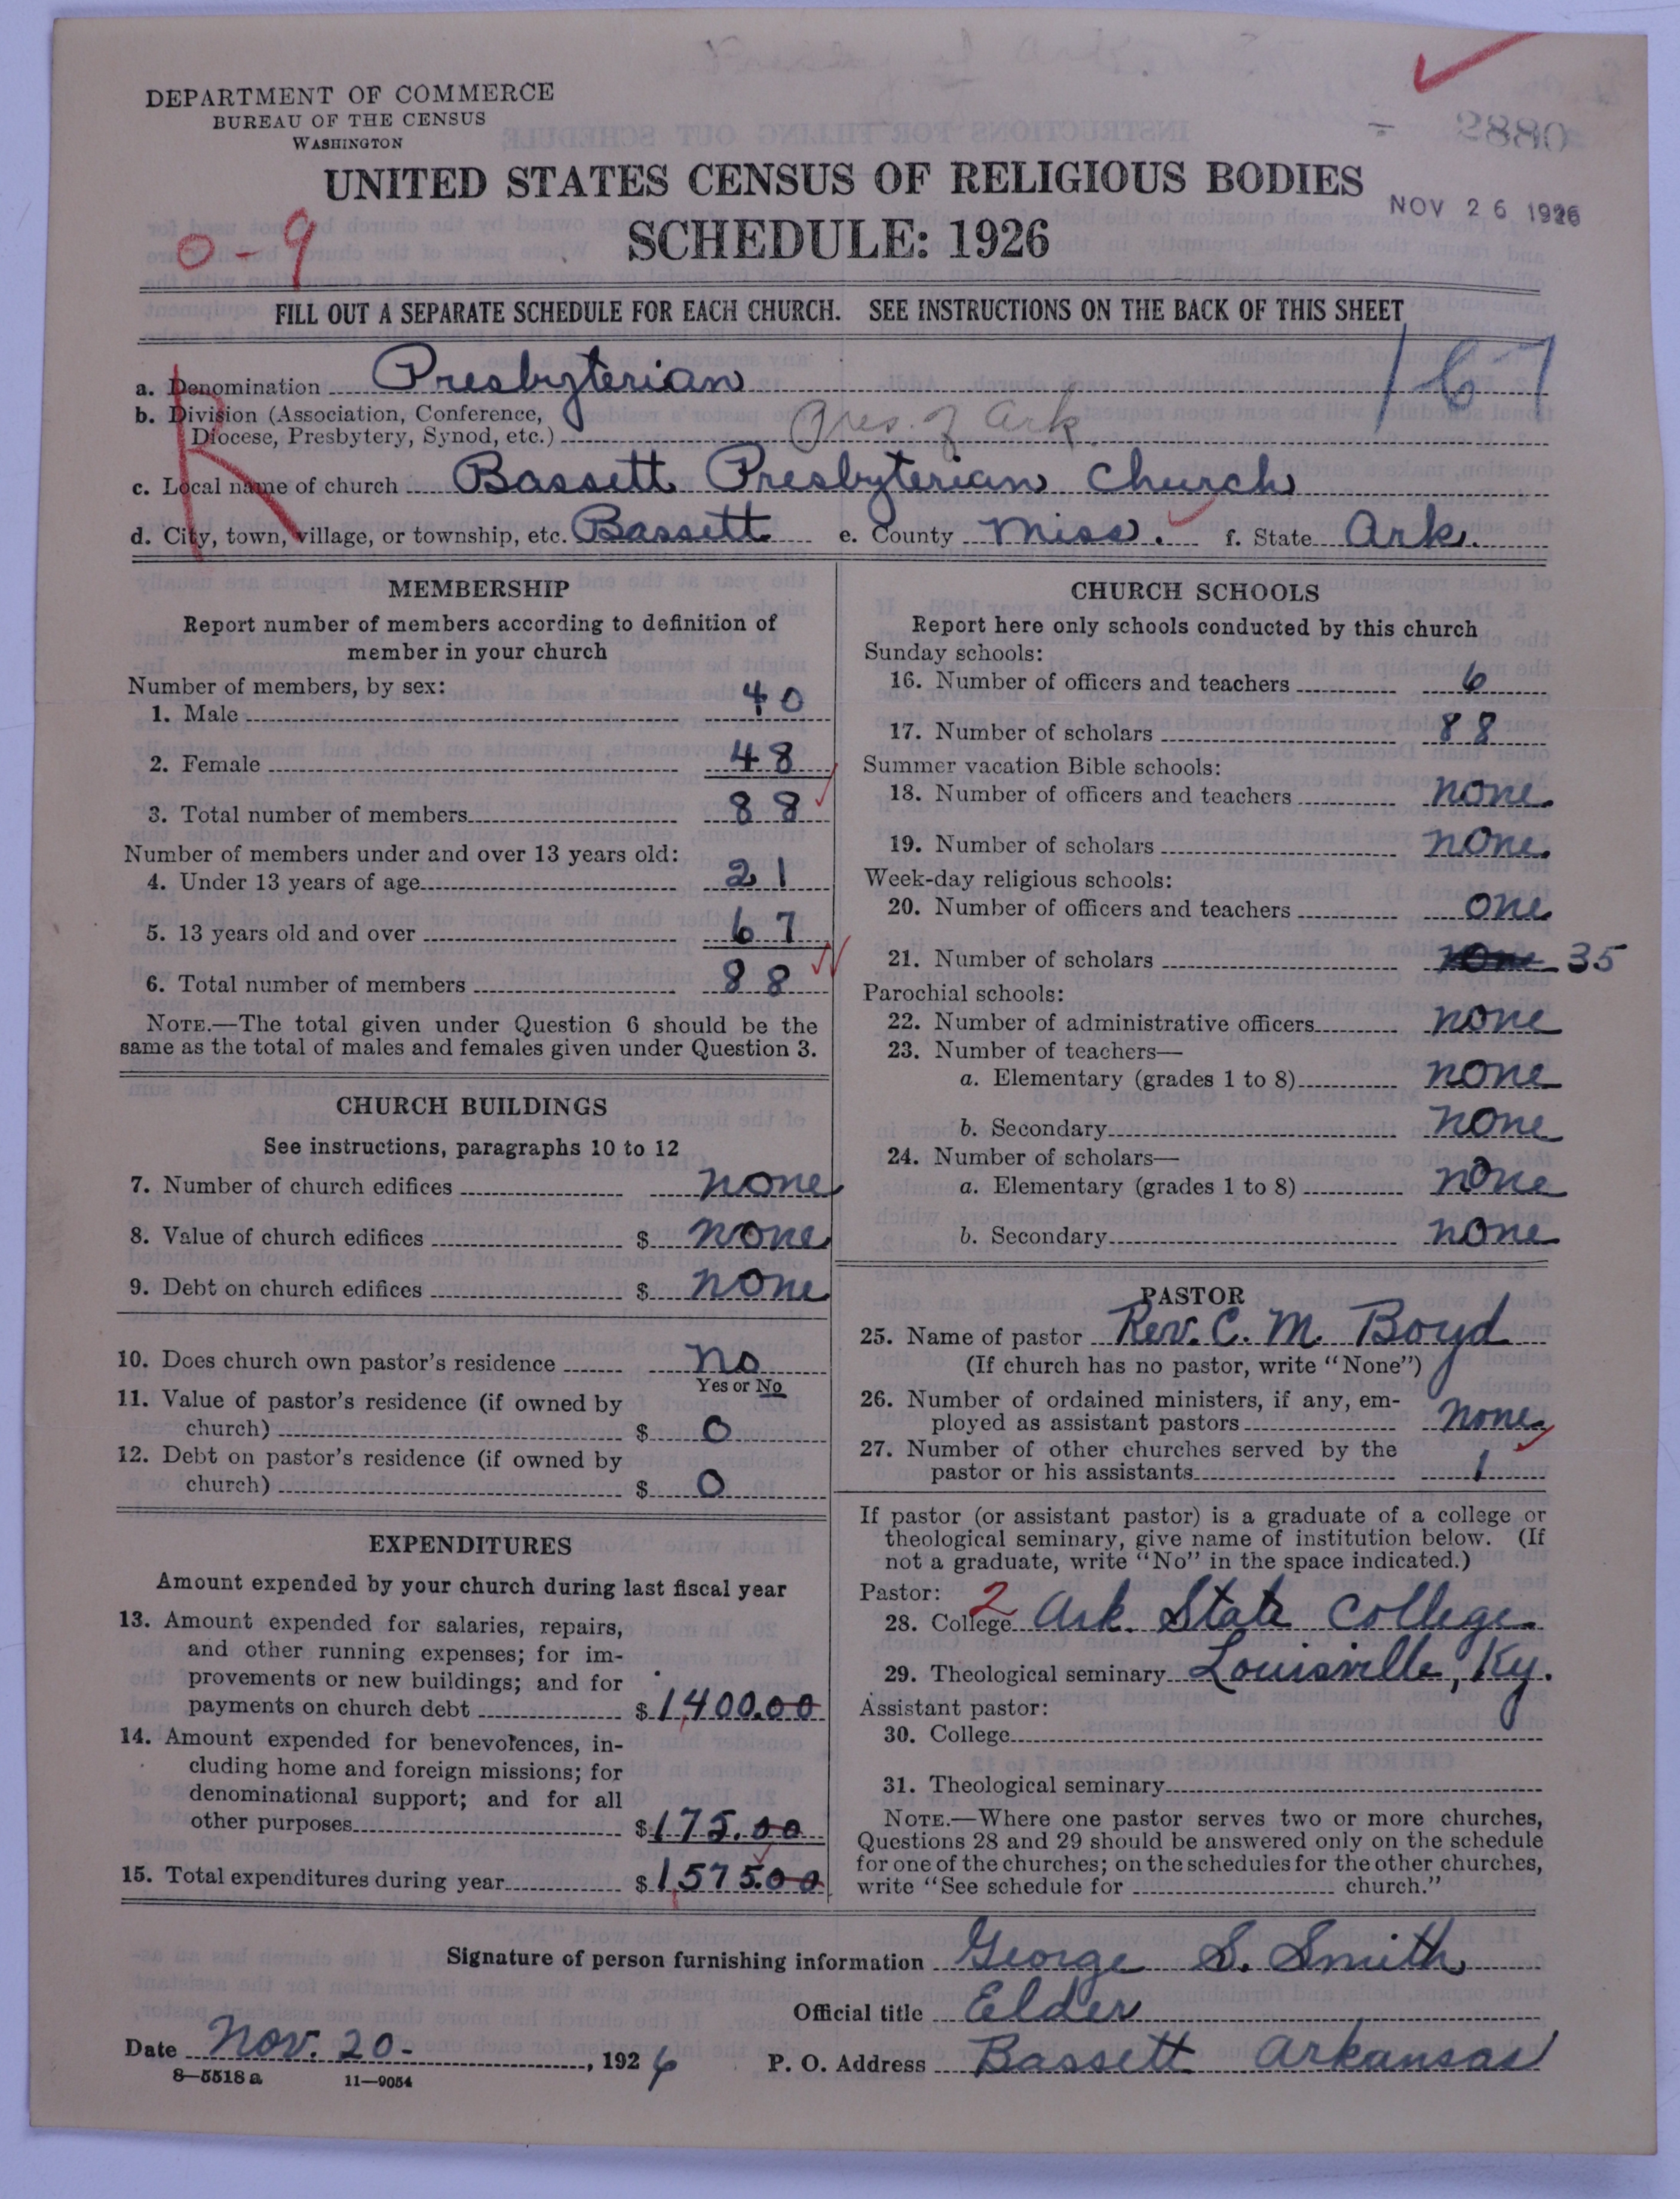 DEPARTMENT OF COMMERCE
BUREAU OF THE CENSUS
WASHINGTON
2880
UNITED STATES CENSUS OF RELIGIOUS BODIES
NOV 26 1926
0-9
SCHEDULE: 1926
FILL OUT A SEPARATE SCHEDULE FOR EACH CHURCH. SEE INSTRUCTIONS ON THE BACK OF THIS SHEET
167
R
a. Denomination Presbyterian
b. Division (Association, Conference,
Diocese, Presbytery, Synod, etc.) Pres. of Ark.
c. Local name of church Bassett Presbyterian Church
d. City, town, village, or township, etc. Bassett e. County Miss. f. State Ark.
MEMBERSHIP
Report number of members according to definition of
member in your church
Number of members, by sex:
1. Male 40
2. Female 48
3. Total number of members 88
Number of members under and over 13 years old:
4. Under 13 years of age 21
5. 13 years old and over 67
6. Total number of members 88
NOTE.—The total given under Question 6 should be the
same as the total of males and females given under Question 3.
CHURCH BUILDINGS
See instructions, paragraphs 10 to 12
7. Number of church edifices none
8. Value of church edifices $ none
9. Debt on church edifices $ none
10. Does church own pastor's residence no
Yes or No
11. Value of pastor's residence (if owned by
church) $ 0
12. Debt on pastor's residence (if owned by
church) $ 0
EXPENDITURES
Amount expended by your church during last fiscal year
13. Amount expended for salaries, repairs,
and other running expenses; for im-
provements or new buildings; and for
payments on church debt $ 1,400.00
14. Amount expended for benevolences, in-
cluding home and foreign missions; for
denominational support; and for all
other purposes $ 175.00
15. Total expenditures during year $ 1,575.00
CHURCH SCHOOLS
Report here only schools conducted by this church
Sunday schools:
16. Number of officers and teachers 6
17. Number of scholars 88
Summer vacation Bible schools:
18. Number of officers and teachers none.
19. Number of scholars none.
Week-day religious schools:
20. Number of officers and teachers one
21. Number of scholars none 35
Parochial schools:
22. Number of administrative officers none
23. Number of teachers—
a. Elementary (grades 1 to 8) none
b. Secondary none
24. Number of scholars—
a. Elementary (grades 1 to 8) none
b. Secondary none
PASTOR
25. Name of pastor Rev. C. M. Boyd
(If church has no pastor, write "None")
26. Number of ordained ministers, if any, em-
ployed as assistant pastors none
27. Number of other churches served by the
pastor or his assistants 1
If pastor (or assistant pastor) is a graduate of a college or
theological seminary, give name of institution below. (If
not a graduate, write "No" in the space indicated.)
Pastor: 2
28. College Ark. State College.
29. Theological seminary Louisville, Ky.
Assistant pastor:
30. College
31. Theological seminary
NOTE.—Where one pastor serves two or more churches,
Questions 28 and 29 should be answered only on the schedule
for one of the churches; on the schedules for the other churches,
write "See schedule for church."
Signature of person furnishing information George S. Smith
Official title Elder
Date Nov. 20-, 1926 P. O. Address Bassett Arkansas
8—5518 a 11—9054